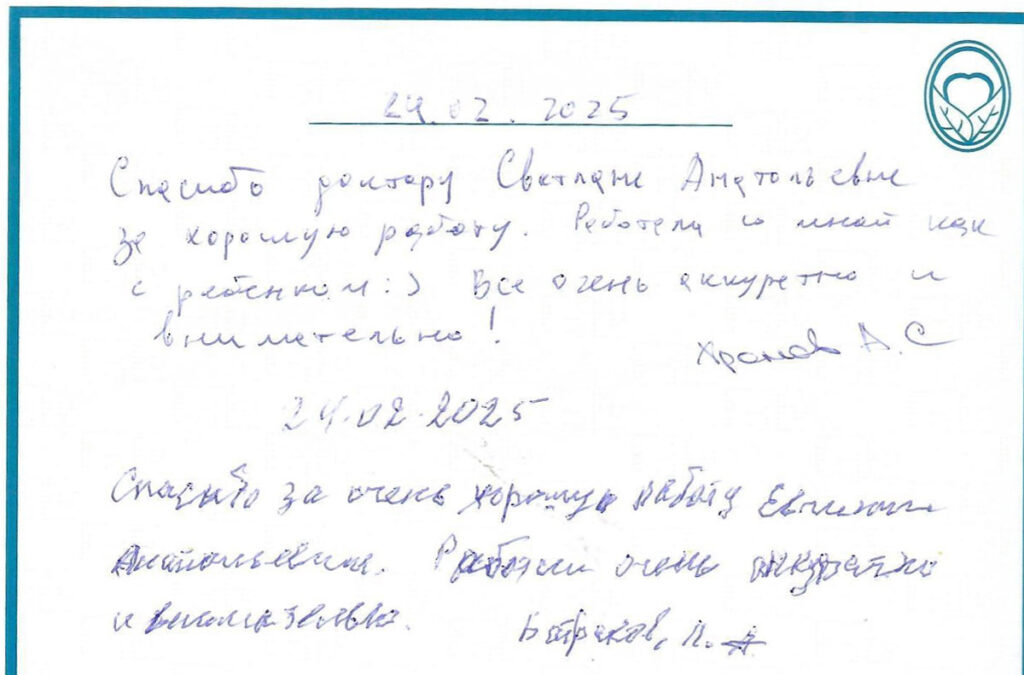 24.02.2025
Спасибо доктору Светлане Анатольевне
за хорошую работу. Работала со мной как
с ребенком :) Все очень аккуратно и
внимательно!
Храмов А.С
24.02.2025
Спасибо за очень хорошую работу
Анатольевне. очень аккуратно
и внимательно.